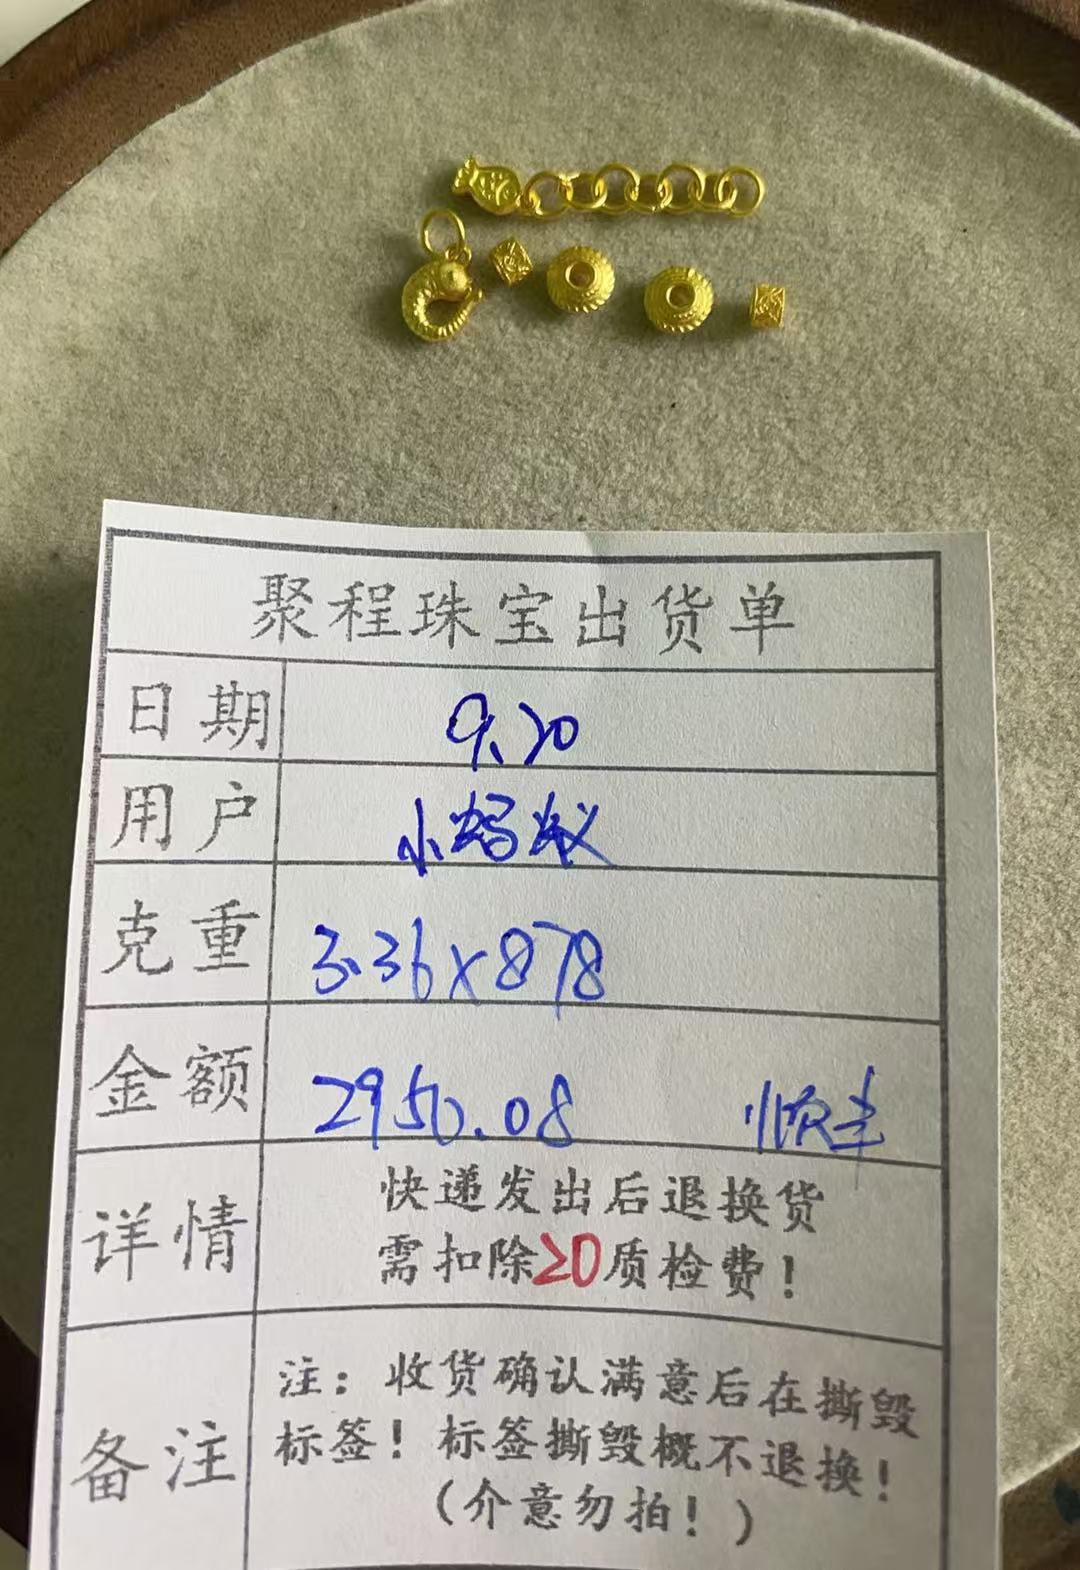 聚程珠宝出货单
日期 9.20
用户 小蚂蚁
克重 3.36×878
金额 2950.08 顺丰
详情 快递发出后退换货
需扣除20质检费!
备注 注：收货确认满意后在撕毁
标签!标签撕毁概不退换!
(介意勿拍!)